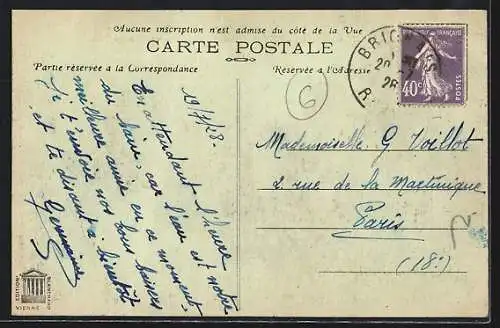 Aucune inscription n'est admise du côté de la Vue
CARTE POSTALE
Partie réservée a la Correspondance
Réservée a l'Adresse
19/7/28
En attendant l'heure
du bain, car l'eau est notre
meilleure amie en ce moment,
je t'envoie nos bons baisers
et te disant à bientôt
Germaine
6
Mademoiselle G Voillot
2 rue de la Martinique
Paris
(18e)
BRIGN
20
28
R.
FRANÇAISE
40c
POSTES
EDITION
VIENNE